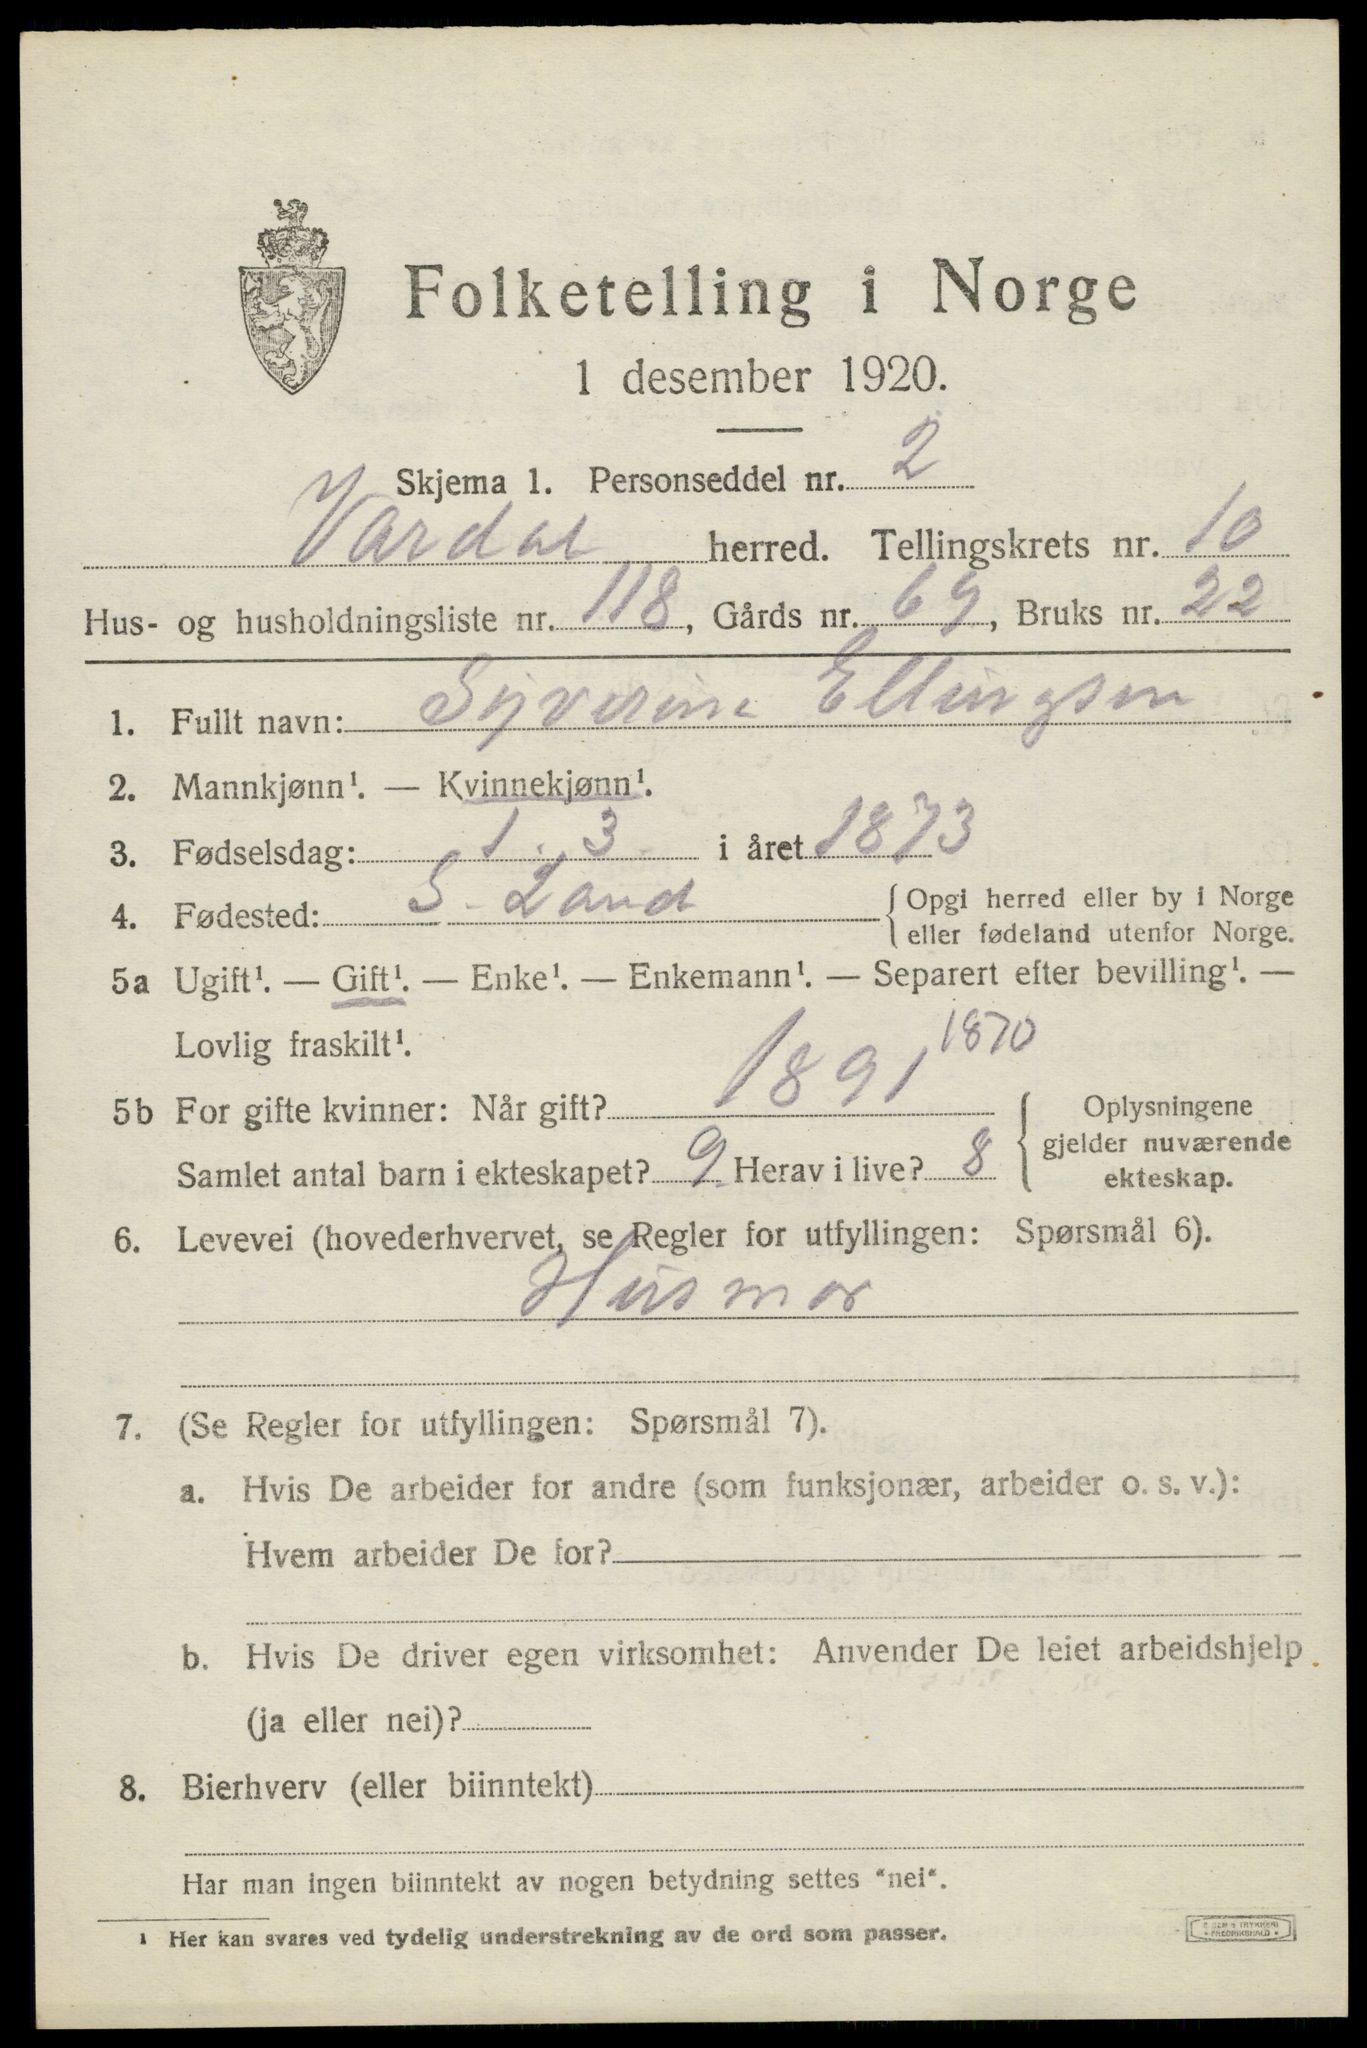 Folketelling i Norge
1 desember 1920.
Skjema 1. Personseddel nr. 2
Vardal herred. Tellingskrets nr. 10
Hus- og husholdningsliste nr. 118, Gårds nr. 69, Bruks nr. 22
1. Fullt navn: Syverine Ellingsen
2. Mannkjønn¹. — Kvinnekjønn¹.
3. Fødselsdag: 1. 3 i året 1873
4. Fødested: S. Land {Opgi herred eller by i Norge
eller fødeland utenfor Norge.
5a Ugift¹. — Gift¹. — Enke¹. — Enkemann¹. — Separert efter bevilling¹. —
Lovlig fraskilt¹.
1870
5b For gifte kvinner: Når gift? 1891
Samlet antal barn i ekteskapet? 9. Herav i live? 8
{ Oplysningene
gjelder nuværende
ekteskap.
6. Levevei (hovederhvervet, se Regler for utfyllingen: Spørsmål 6).
Husmor
7. (Se Regler for utfyllingen: Spørsmål 7).
a. Hvis De arbeider for andre (som funksjonær, arbeider o. s. v.):
Hvem arbeider De for?
b. Hvis De driver egen virksomhet: Anvender De leiet arbeidshjelp
(ja eller nei)?
8. Bierhverv (eller biinntekt)
Har man ingen biinntekt av nogen betydning settes "nei".
¹ Her kan svares ved tydelig understrekning av de ord som passer.
TRYKKERI
FREDRIKSHALD